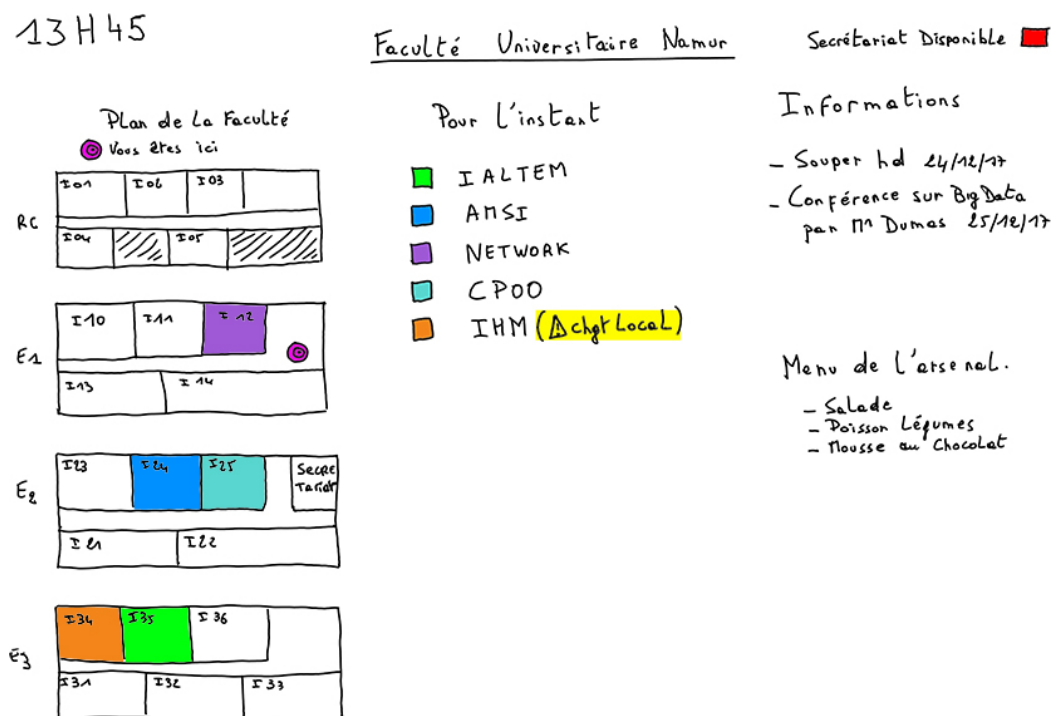 13H45
Faculté Universitaire Namur
Secrétariat Disponible
Plan de La Faculté
Vous êtes ici
RC
I01 I02 I03
I04 I05
E1
I10 I11 I12
I13 I14
E2
I23 I24 I25 Secre
Tariat
I21 I22
E3
I34 I35 I36
I31 I32 I33
Pour L'instant
IALTEM
AMSI
NETWORK
CPOO
IHM (⚠ chgt Local)
Informations
- Souper 24/12/17
- Conférence sur Big Data
par Mr Dumas 25/12/17
Menu de l'arsenal.
- Salade
- Poisson Légumes
- Mousse au Chocolat